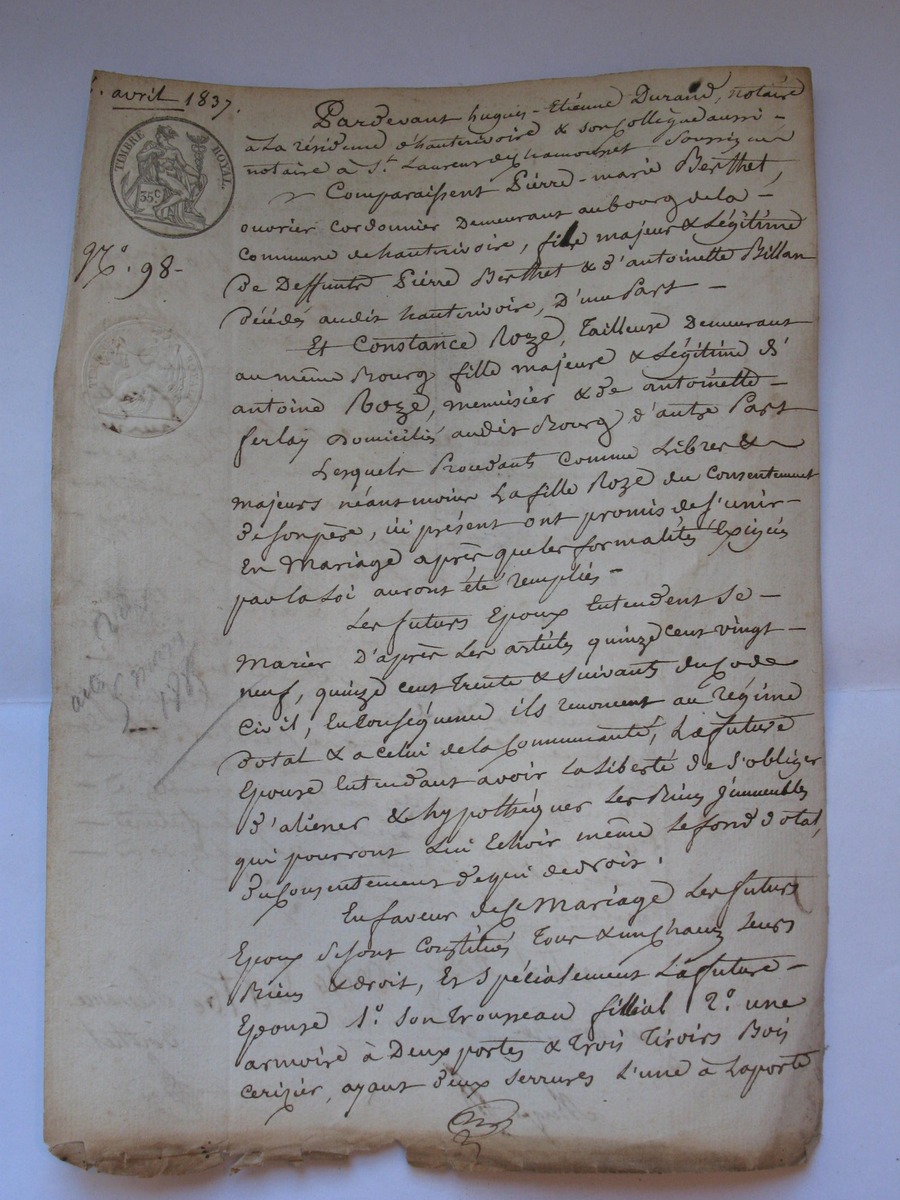 avril 1837.
TIMBRE ROYAL.
35c
No. 98-
Pardevant hugues-Etiénne Durand, notaire
à La résidence d'hauterivoire & son Collegue aussi
notaire à St. Laurent de chamousset Soussignés
Comparaissent Piérre-marie Berthet,
ouvrier cordonnier Demeurant au bourg de la
Commune de hauterivoire, fils majeur & Légitime
De Deffunts Piérre Berthet & d'antoinette Billan
Décédés audit hauterivoire, D'une Part
Et Constance Roze, Tailleuse Demeurant
au même Bourg fille majeure & Légitime d'
antoine Roze, menuisier & de antoinette
ferlay Domiciliés audit Bourg d'autre Part
Lesquels Procédants Comme Libres &
majeurs néantmoins La fille Roze du Consentement
de son père, ici présent ont promis de s'unir
En Mariage après que les formalités Exigées
par la Loi auront été remplies-
Les futurs Epoux Entendent Se-
Marier D'après Les articles quinze cent vingt-
neuf, quinze cent Trente & Suivants du Code
Civil, En Conséquence ils renoncent au régime
Dotal & a celui de la Communauté, La future
Epouse Entendant avoir La Liberté de S'obliger
D'aliéner & hypothéquer Les Biens Immeubles
qui pourront Lui Echoir même Le fond Dotal,
Du Consentement de qui de droit.
En faveur de ce Mariage Les futurs
Epoux Se sont Constitués Tous & un chacun Leurs
Biens & droit, Et Spécialement La future-
Epouse 1o. Son Trousseau fillial 2o. une
armoire à Deux portes & Trois Tiroirs Bois
Cerizier, ayant deux serrures L'une à La porte